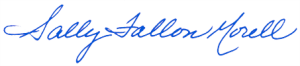 Sally Fallon Morell